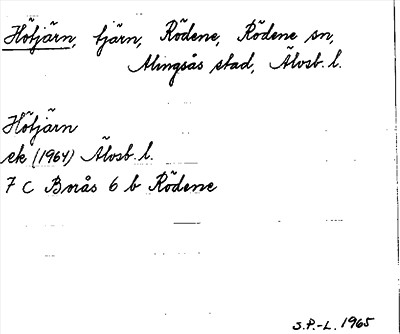 Hötjärn, tjärn, Rödene, Rödene sn,
Alingsås stad, Älvsb. l.
Hötjärn
ek (1964) Älvsb. l.
7 C Borås 6 b Rödene
S.P.-L. 1965